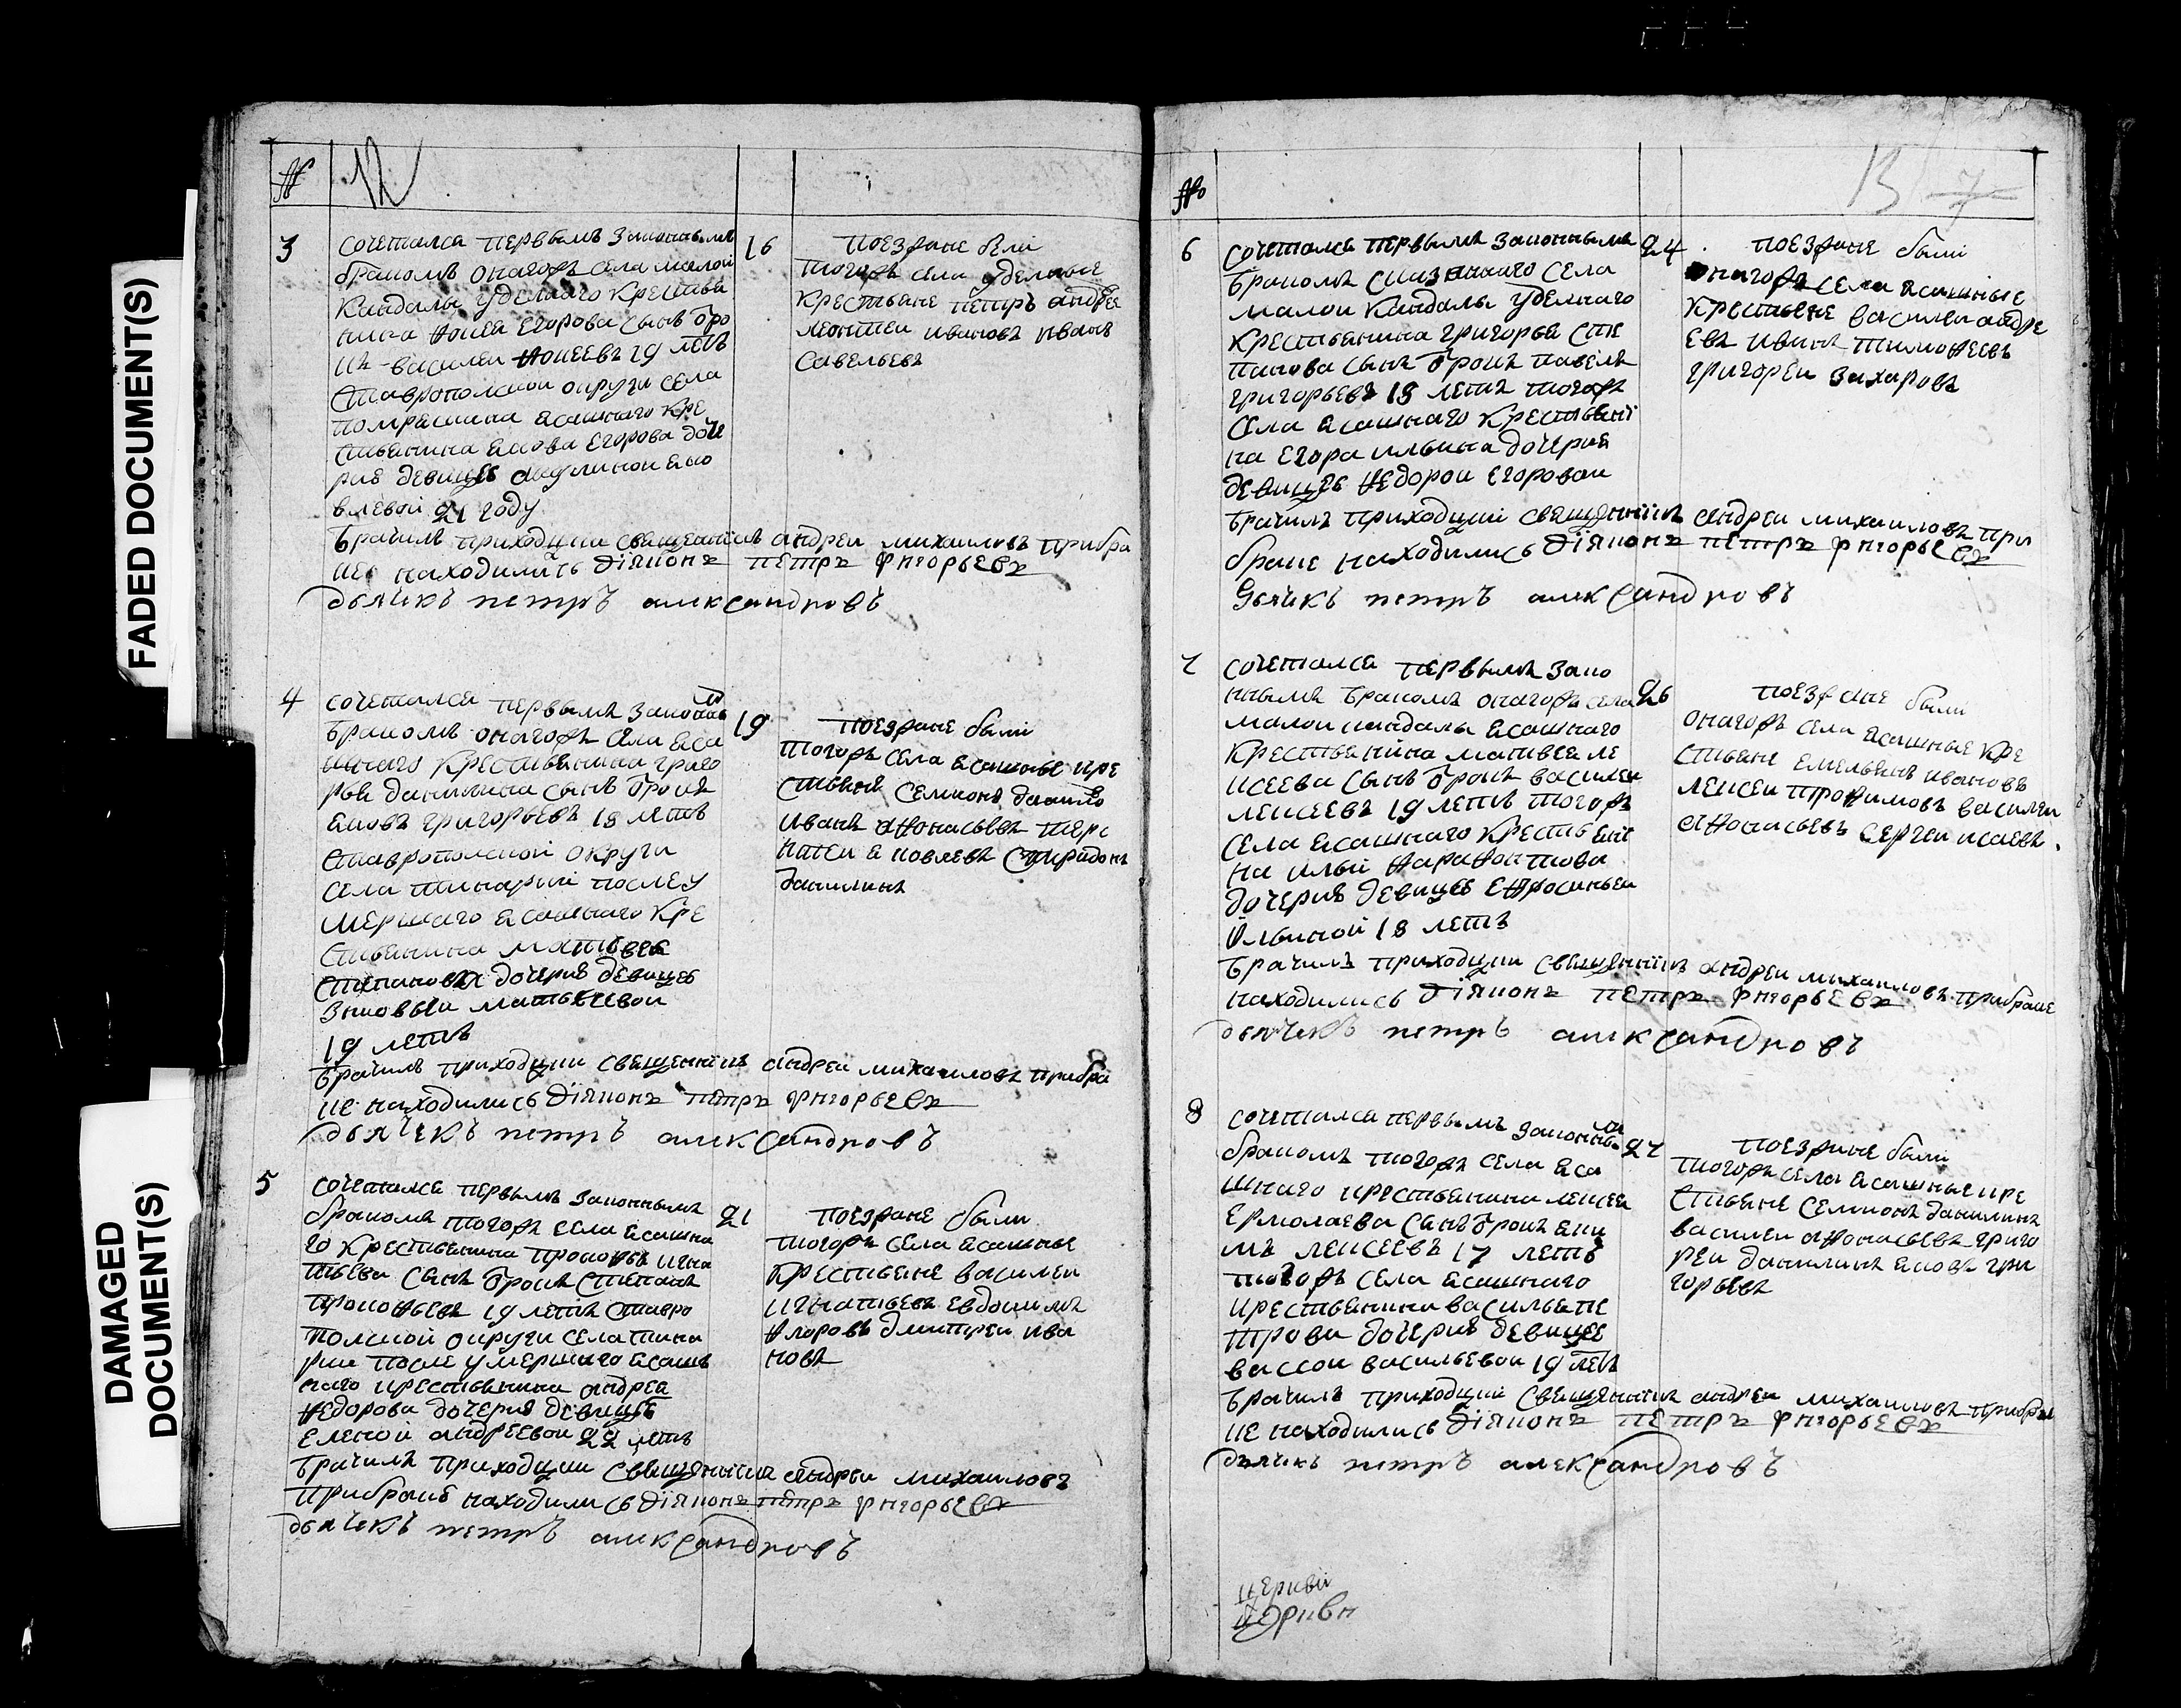 FADED DOCUMENT(S)
DAMAGED
DOCUMENT(S)
№ 12
3 сочетался первымъ законнымъ 16
бракомъ онагожъ села малой
Кандалы удельнаго крестья
нина Фокея Егорова сынъ Отро
къ василеи Фокеевъ 19 летъ
Ставропольской округи села
помряскина ясашнаго кре
стьянина якова Егорова доче
рию девицею акулиной яко
влевой 21 году
поезжане были
тогожъ села удельные
крестьяне петръ андрея
леонтеи ивановъ иванъ
савельевъ
Брачилъ приходцки священникъ андреи михаиловъ прибра
ке находились діяконъ петръ григорьевъ
дьячекъ петръ александровъ
4 сочетался первымъ законнымъ 19
бракомъ онагожъ села яса
шнаго крестьянина григо
рья данилина сынъ Отрокъ
яковъ григорьевъ 18 летъ
Ставропольской округи
села тинарки после у
мершаго ясашнаго кре
стьянина матвея
степанова дочерию девицею
Зиновьеи матвеевои
19 летъ
поезжане были
тогожъ села ясашные кре
стьяне семионъ данило
иванъ афонасьевъ
яковлевъ спиридонъ
данилинъ
Брачилъ приходцки священникъ андреи михаиловъ прибра
ке находились діяконъ петръ григорьевъ
дьячекъ петръ александровъ
5 сочетался первымъ законнымъ 21
бракомъ тогожъ села ясашна
го крестьянина прокофья игна
тьева сынъ Отрокъ степанъ
прокофьевъ 19 летъ ставро
польской округи села тина
рки после умершаго ясашъ
наго крестьянина андрея
Федорова дочерию девицею
Еленой андреевои 22 летъ
поезжане были
тогожъ села ясашные
крестьяне василеи
игнатьевъ евдокимъ
Флоровъ дмитреи ива
новъ
Брачилъ приходцки священникъ андреи михаиловъ
прибраке находились діяконъ петръ григорьевъ
дьячекъ петръ александровъ
№ 13 7
6 сочетался первымъ законнымъ 24
бракомъ сказаннаго села
малои Кандалы удельнаго
крестьянина григорья сте
панова сынъ Отрокъ павелъ
григорьевъ 18 летъ тогожъ
села ясашнаго крестьяни
на Егора ильина дочерию
девицею Федорои Егоровои
поезжане были
онагожъ села ясашные
крестьяне василеи андре
евъ иванъ тимофеевъ
григореи захаровъ
Брачилъ приходцкіи священникъ андреи михаиловъ при
браке находились діяконъ петръ григорьевъ
дьячекъ петръ александровъ
7 сочетался первымъ зако
ннымъ бракомъ онагожъ села 26
малои кандалы ясашнаго
крестьянина матвея ле
ксеева сынъ Отрокъ василеи
лексеевъ 19 летъ тогожъ
села ясашнаго крестьяни
на ильи Фарафонтова
дочерию девицею Ефросиньеи
Ильиной 18 летъ
поезжане были
онагожъ села ясашные кре
стьяне емельянъ ивановъ
лексеи трофимовъ василеи
афонасьевъ сергеи исаевъ.
Брачилъ приходцки священникъ андреи михаиловъ прибраке
находились діяконъ петръ григорьевъ
дьячекъ петръ александровъ
8 сочетался первымъ законнымъ 27
бракомъ тогожъ села яса
шнаго крестьянина лексея
Ермолаева сынъ Отрокъ яки
мъ лексеевъ 17 летъ
тогожъ села ясашнаго
крестьянина василья пе
трова дочерию девицею
вассои васильевои 19 летъ
поезжане были
тогожъ села ясашные кре
стьяне семионъ данилинъ
василеи афонасьевъ григо
реи данилинъ яковъ гри
горьевъ
Брачилъ приходцкии священникъ андреи михаиловъ прибра
ке находились діяконъ петръ григорьевъ
дьячекъ петръ александровъ
церкви
церкви